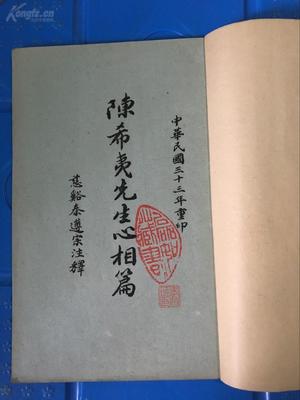 Kongfz.com
中華民國三十三年重印
陳希夷先生心相篇
慈谿秦遵宗注釋